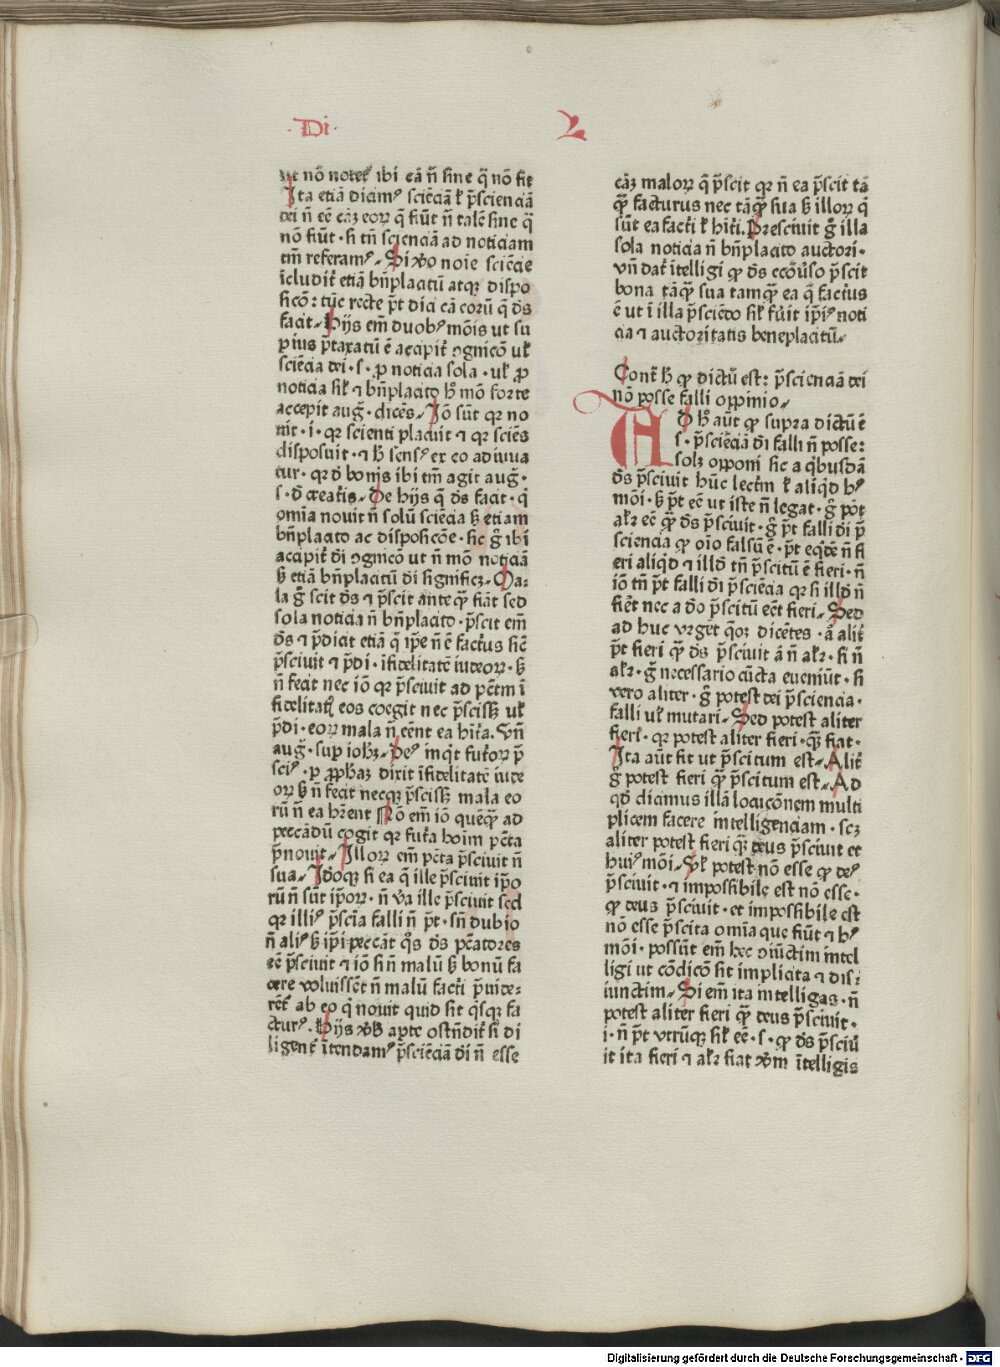 ·Di· 2
ut nō notet᷑ ibi cā n̄ sine q̄ nō fit
Ita etiā dicimꝰ sciēciā ł p̄scienciā
dei n̄ eē cāꝫ eoꝝ q̄ fiūt n̄ talē sine q̄
nō fiūt · si tn̄ scienciā ad noticiam
tm̄ referamꝰ. Si vo noīe sciēcie
īcludit᷑ etiā bn̄placitū atqꝫ dispo
sicō: tūc recte p̄t dici cā eoꝝ q̄ ds̄
facit. Hijs em̄ duobꝰ mōis ut su
pius p̄taxatū ē accipit᷑ ꝯgnicō uł
sciēcia dei · s · ꝑ noticia sola · uł ꝓ
noticia sił ⁊ bn̄placito h̄ mō forte
accepit auḡ · dicēs. Iō sūt qꝛ no
uit · i · qꝛ scienti placuit ⁊ qꝛ sciēs
disposuit · ⁊ h̄ sensꝰ ex eo adiuua
tur · qꝛ d̄ bonis ibi tm̄ agit auḡ ·
s · d̄ creatis. De hijs q̄ ds̄ facit · q̄
omīa nouit n̄ solū sciēcia s̄ etiam
bn̄placito ac disposicōe · sic g̊ ibi
accipit᷑ di ꝯgnicō ut n̄ mō noticiā
s̄ etiā bn̄placitū di significꝫ. Ma-
la g̊ scit ds̄ ⁊ p̄scit ante q̄ fiāt sed
sola noticia n̄ bn̄placito · p̄scit em̄
ds̄ ⁊ p̄dicit etiā q̄ ip̄e n̄ ē factꝰ sic̄
p̄sciuit ⁊ p̄di · īfidelitatē iudeoꝝ · s̄
n̄ fecit nec iō qꝛ p̄sciuit ad pc̄tm̄ ī
fidelitatꝭ eos coegit nec p̄scissꝫ uł
p̄di · eoꝝ mala n̄ eēnt ea hit᷑a. Vn̄
auḡ · sup iohꝫ. Deꝰ inq̇t futoꝝ p̄
sciꝰ · ꝑ ꝓphaꝫ dixit īfidelitatē iude
oꝝ s̄ n̄ fecit necqꝫ p̄scissꝫ mala eo
rū n̄ ea hr̄ent Nō em̄ iō quēq̄ ad
peccādū cogit qꝛ fut᷑a hoīm pc̄ta
p̄nouit. Illoꝝ em̄ pc̄ta p̄sciuit n̄
sua. Idoqꝫ si ea q̄ ille p̄sciuit ip̄o
rū n̄ sūt ip̄oꝝ · n̄ v̄a ille p̄sciuit sed
qꝛ illiꝰ p̄scīa falli n̄ p̄t · sn̄ dubio
n̄ aliꝰ s̄ ip̄i peccāt q̊s ds̄ pc̄atores
eē p̄sciuit ⁊ iō si n̄ malū s̄ bonū fa
cere voluissēt n̄ malū facti p̄uide-
rēt᷑ ab eo q̄ nouit quid sit q̇sqꝫ fa
cturꝰ. Hijs v̄b apte ostn̄dit᷑ si di
ligent᷑ ītendamꝰ p̄sciēciā di n̄ esse
cāꝫ maloꝝ q̄ p̄scit qꝛ n̄ ea p̄scit tā
q̄ facturus nec tāq̄ sua s̄ illoꝝ q̄
sūt ea facti ł hit᷑i. Presciuit g̊ illa
sola noticia n̄ bn̄placito auctori ·
vn̄ dat᷑ ītelligi ꝙ ds̄ ecōūso p̄scit
bona tāq̄ sua tamq̄ ea q̄ factꝰus
ē ut ī illa p̄sciēdo sił fūit ip̄iꝰ noti
cia ⁊ auctoritatis beneplacitū.
Cont᷑ h̄ ꝙ dictū est: p̄scienciā dei
nō posse falli oppinio.
AD h̄ aūt ꝙ supra dictū ē
s · p̄sciēciā di falli n̄ posse:
solꝫ opponi sic a q̇busdā
ds̄ p̄sciuit hūc lectm̄ ł aliq̇d hꝰ
mōi · s̄ p̄t eē ut iste n̄ legat · g̊ pōt
alr̄ eē q̄ ds̄ p̄sciuit · g̊ p̄t falli di p̄
sciencia ꝙ oīo falsū ē · p̄t eq̇dē n̄ fi
eri aliq̇d ⁊ illd̄ tn̄ p̄scitū ē fieri · n̄
iō tn̄ p̄t falli di p̄sciēcia qꝛ si illd̄ n̄
fieēt nec a do p̄scitū eēt fieri. Sed
ad huc vrgēt q̄oꝫ dicētes · ā alit᷑
p̄t fieri q̄ ds̄ p̄sciuit ā n̄ alr̄ · si n̄
alr̄ · g̊ necessario cūcta eueniūt · si
vero aliter · g̊ potest dei p̄sciencia ·
falli uł mutari. Sed potest aliter
fieri · qꝛ potest aliter fieri · q̄ fiat ·
Ita aūt fit ut p̄scitum est. Alit᷑
g̊ potest fieri q̄ p̄scitum est. Ad
qd̄ dicimus illā locucōnem multi
plicem facere intelligenciam · scꝫ
aliter potest fieri q̄ deus p̄sciuit et
huiꝰ mōi. Vł potest nō esse ꝙ deꝰ
p̄sciuit · ⁊ impossibile est nō esse ·
ꝙ deus p̄sciuit · et impossibile est
nō esse p̄scita omīa que fiūt ⁊ hꝰ
mōi · possūt em̄ hec ꝯiūctim intel
ligi ut cōdicō sit implicita ⁊ disi
iunctim. Si em̄ ita intelligas · n̄
potest aliter fieri q̄ deus p̄sciuit ·
i · n̄ p̄t vtrūqꝫ sił eē · s · ꝙ ds̄ p̄sciū
it ita fieri ⁊ alr̄ fiat v̄m ītelligis
Digitalisierung gefördert durch die Deutsche Forschungsgemeinschaft - DFG